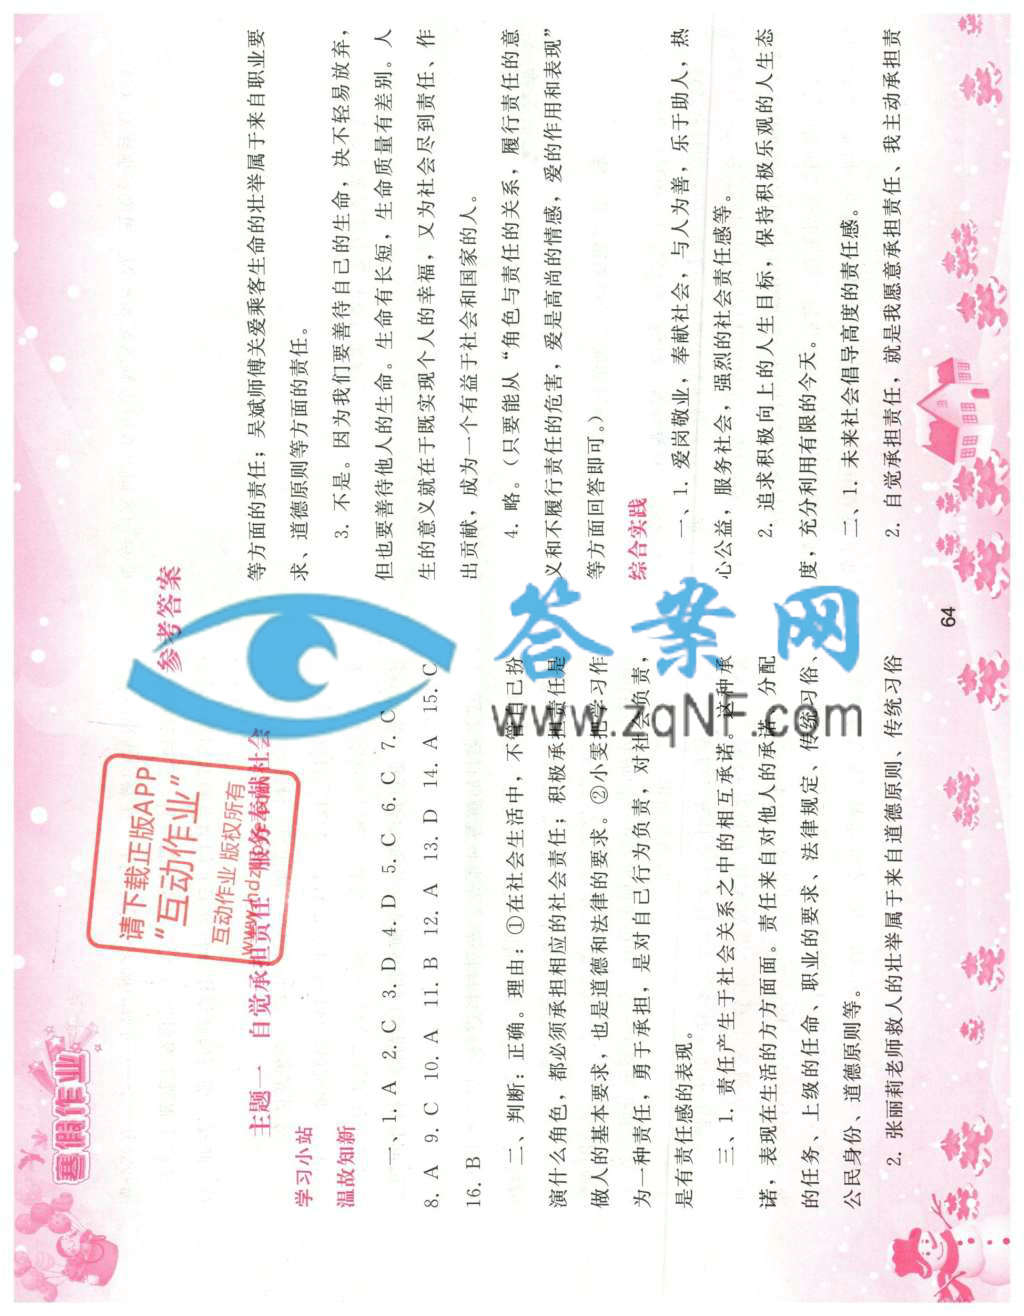 寒假作业
参考答案
主题一 自觉承担责任 服务奉献社会
学习小站
温故知新
一、1. A 2. C 3. D 4. D 5. C 6. C 7. C
8. A 9. C 10. A 11. B 12. A 13. D 14. A 15. C
16. B
二、判断：正确。理由：①在社会生活中，不管自己扮
演什么角色，都必须承担相应的社会责任；积极承担责任是
做人的基本要求，也是道德和法律的要求。②小雯把学习作
为一种责任，勇于承担，是对自己行为负责，对社会负责，
是有责任感的表现。
三、1. 责任产生于社会关系之中的相互承诺。这种承
诺，表现在生活的方方面面。责任来自对他人的承诺、分配
的任务、上级的任命、职业的要求、法律规定、传统习俗、
公民身份、道德原则等。
2. 张丽莉老师救人的壮举属于来自道德原则、传统习俗
等方面的责任；吴斌师傅关爱乘客生命的壮举属于来自职业要
求、道德原则等方面的责任。
3. 不是。因为我们要善待自己的生命，决不轻易放弃，
但也要善待他人的生命。生命有长短，生命质量有差别。人
生的意义就在于既实现个人的幸福，又为社会尽到责任、作
出贡献，成为一个有益于社会和国家的人。
4. 略。（只要能从“角色与责任的关系，履行责任的意
义和不履行责任的危害，爱是高尚的情感，爱的作用和表现”
等方面回答即可。）
综合实践
一、1. 爱岗敬业，奉献社会，与人为善，乐于助人，热
心公益，服务社会，强烈的社会责任感等。
2. 追求积极向上的人生目标，保持积极乐观的人生态
度，充分利用有限的今天。
二、1. 未来社会倡导高度的责任感。
2. 自觉承担责任，就是我愿意承担责任、我主动承担责
64
请下载正版APP
“互动作业”
互动作业 版权所有
答案网
www.zqNF.com